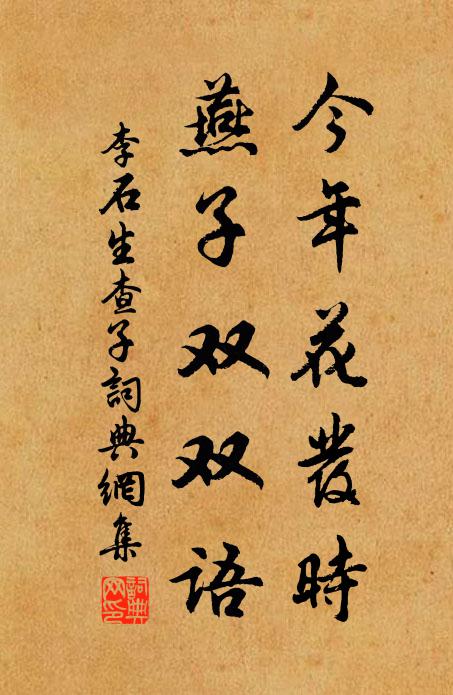 今年花發時
燕子双双语
李石生查子詞典網集
詞典網印